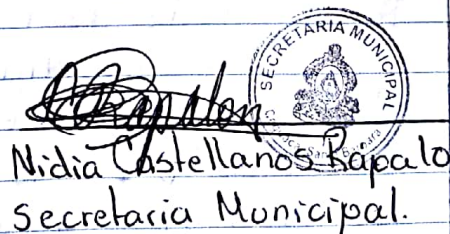 SECRETARIA MUNICIPAL
Santa Barbara
Nidia Castellanos Rapalo
Secretaria Municipal.